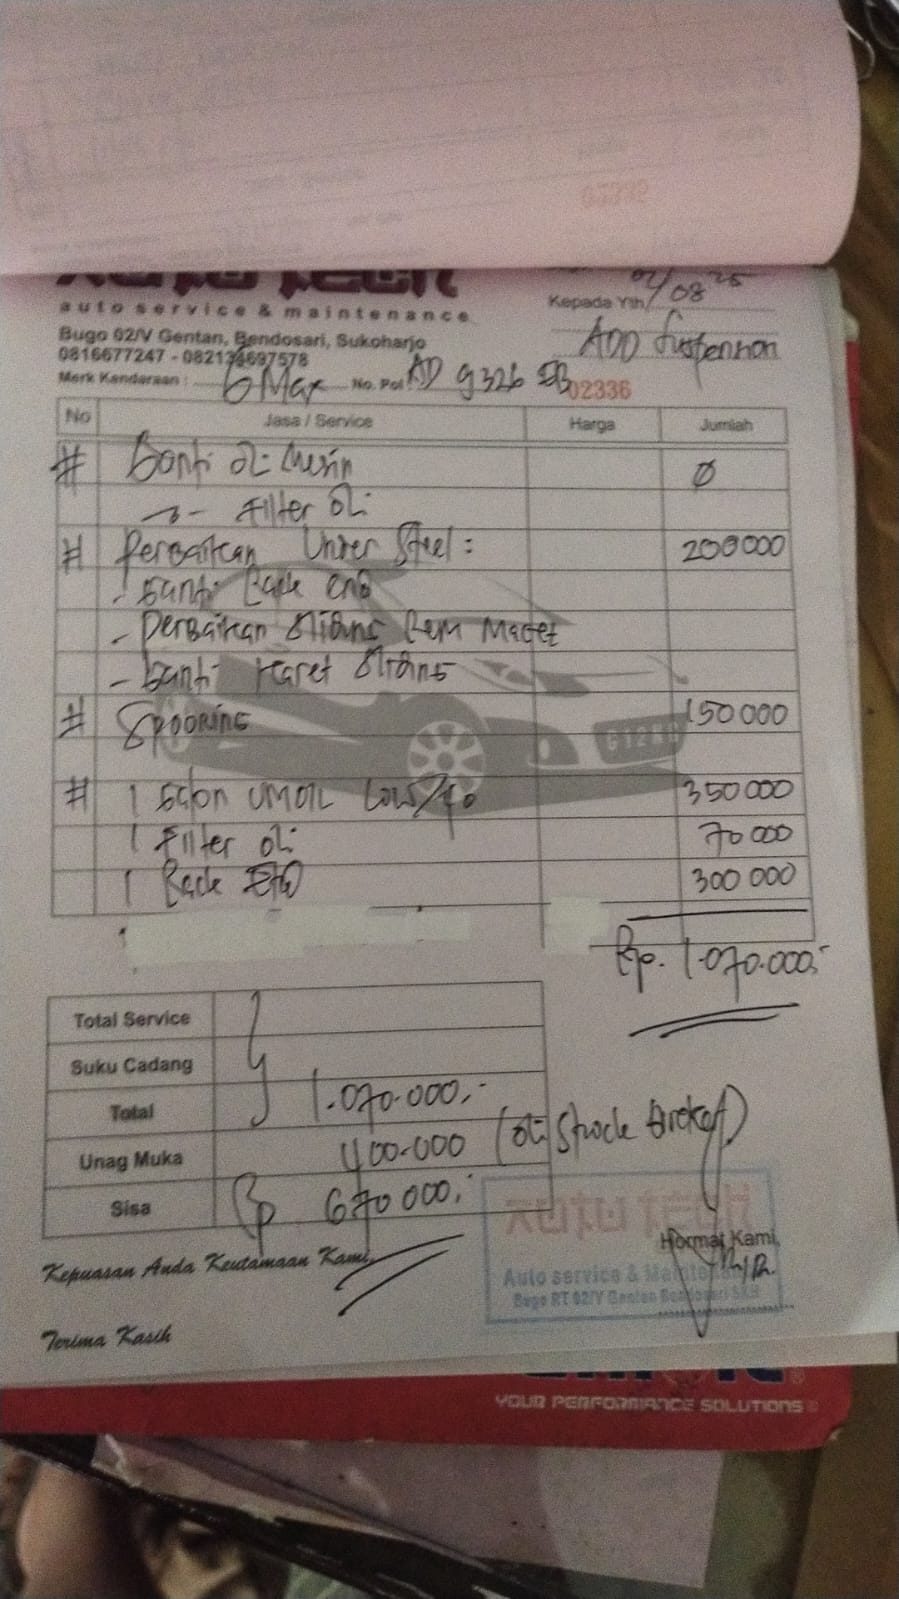 auto tech
auto service & maintenance
Bugo 02/V Gentan, Bendosari, Sukoharjo
Kepada Yth
02/08 25
ADD Suspension
Merk Kendaraan : GMax No. Pol AD 9326 EB
02336
No Jasa / Service Harga Jumlah
# Ganti Oli Mesin Ø
- Filter Oli
# Perbaikan Under Steel : 200000
- Ganti Rack End
- Perbaikan Sliding Rem Macet
- Ganti Karet Sliding
# Spooring 150000
# 1 Galon UMOIL Low/40 350000
1 Filter Oli 70000
1 Rack END 300000
Rp. 1.070.000,-
Total Service
Suku Cadang
Total 1.070.000,-
Unag Muka 400.000 (Oli Shock Broker)
Sisa Rp 670000,-
auto tech
Hormat Kami,
Auto service & Maintenance
Kepuasan Anda Keutamaan Kami
Terima Kasih
YOUR PERFORMANCE SOLUTIONS